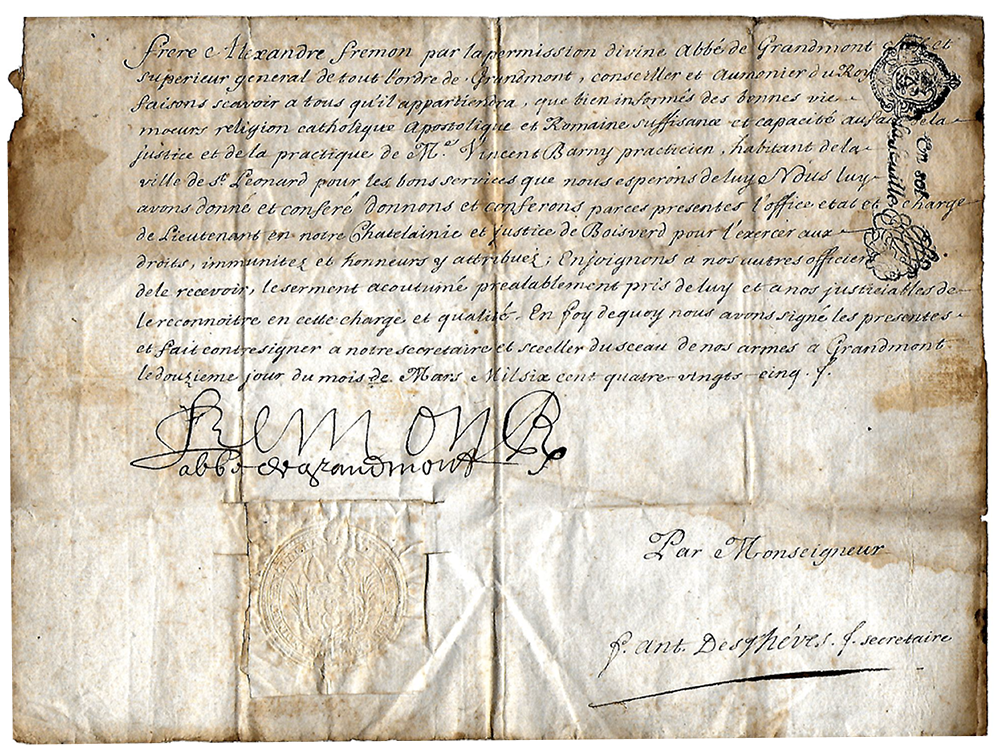 frere Alexandre fremon par la permission divine Abbé de Grandmont et
superieur general de tout l'ordre de Grandmont, conseiller et aumonier du Roy
faisons scavoir a tous qu'il appartiendra, que bien informés des bonnes vie
moeurs religion catholique Apostolique et Romaine suffisance et capacité au fait de la
justice et de la practique de Me. Vincent Barny practicien, habitant de la
ville de st. Leonard pour les bons services que nous esperons de luy Nous luy
avons donné et conferé donnons et conferons par ces presentes l'office etat et charge
de Lieutenant en notre Chatelainie et justice de Boisverd pour l'exercer aux
droits, immunitez et honneurs y attribuez; Enjoignons a nos autres officiers
de le recevoir, le serment acoutumé prealablement pris de luy et a nos justiciables de
le reconnoitre en cette charge et qualité. En foy de quoy nous avons signé les presentes
et fait contresigner a notre secretaire et sceeller du sceau de nos armes a Grandmont
le douzieme jour du mois de Mars Mil six cent quatre-vingts-cinq.
FREMON
abbé de grandmont
Par Monseigneur
f. ant. Desthéves. f. secretaire